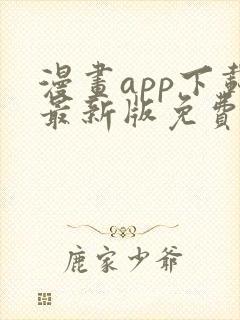 漫畫app下載
最新版免費
鹿家少爺